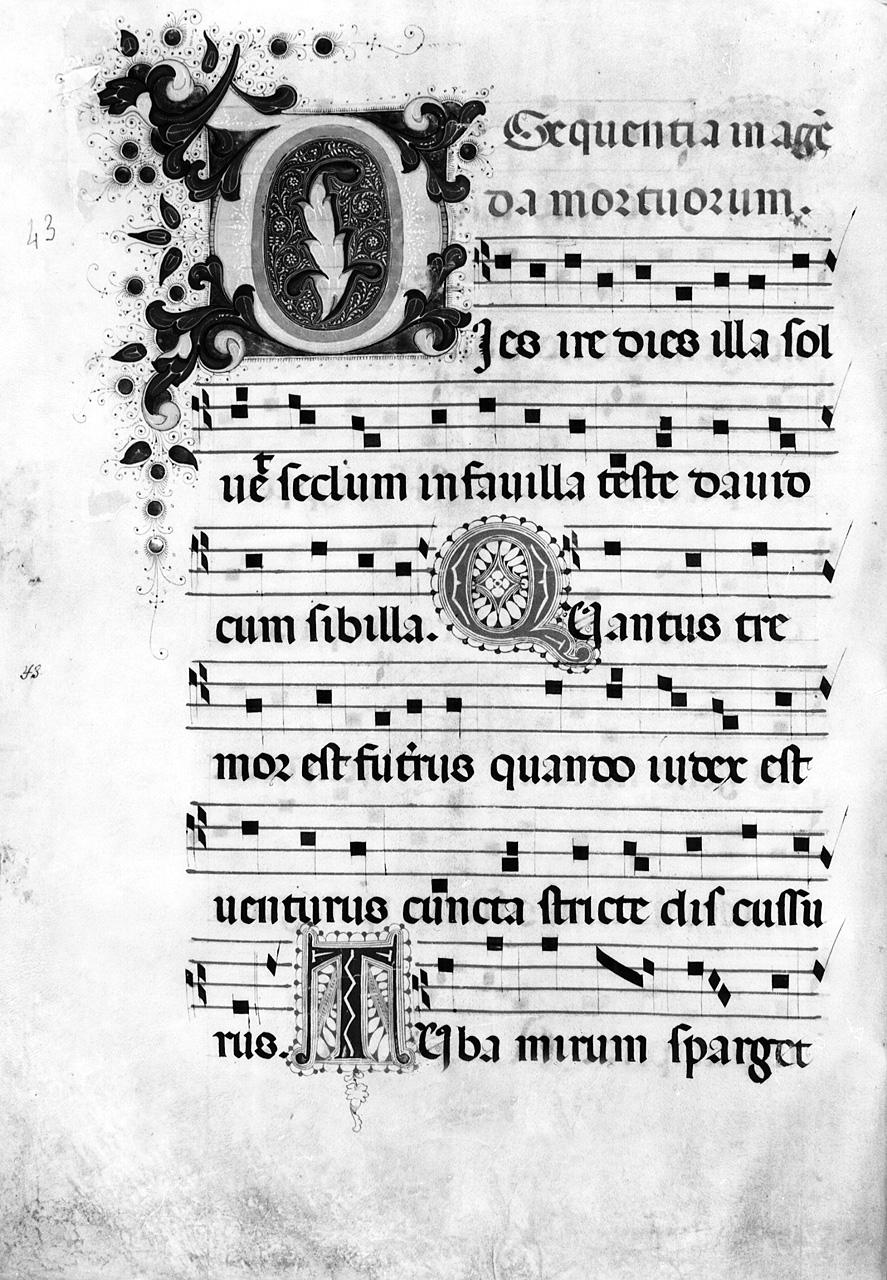 Sequentia in agē
da mortuorum.
43
DJes ire dies illa sol
uet seclum in fauilla teste dauid
cum sibilla. QUantus tre
48
mor est futurus quando iudex est
uenturus cuncta stricte dis cussu
rus. TUba mirum sparget